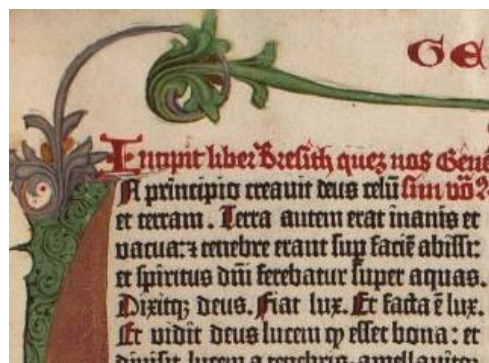 GE
Incipit liber Bresith quez nos Gene
A principio creauit deus celū sim vō?
et terram. Terra autem erat inanis et
vacua: ⁊ tenebre erant sup faciē abissi:
et spiritus dn̄i ferebatur super aquas.
Dixitq; deus. Fiat lux. Et facta ē lux.
Et vidit deus lucem ꝙ esset bona: et
diuisit lucem a tenebris